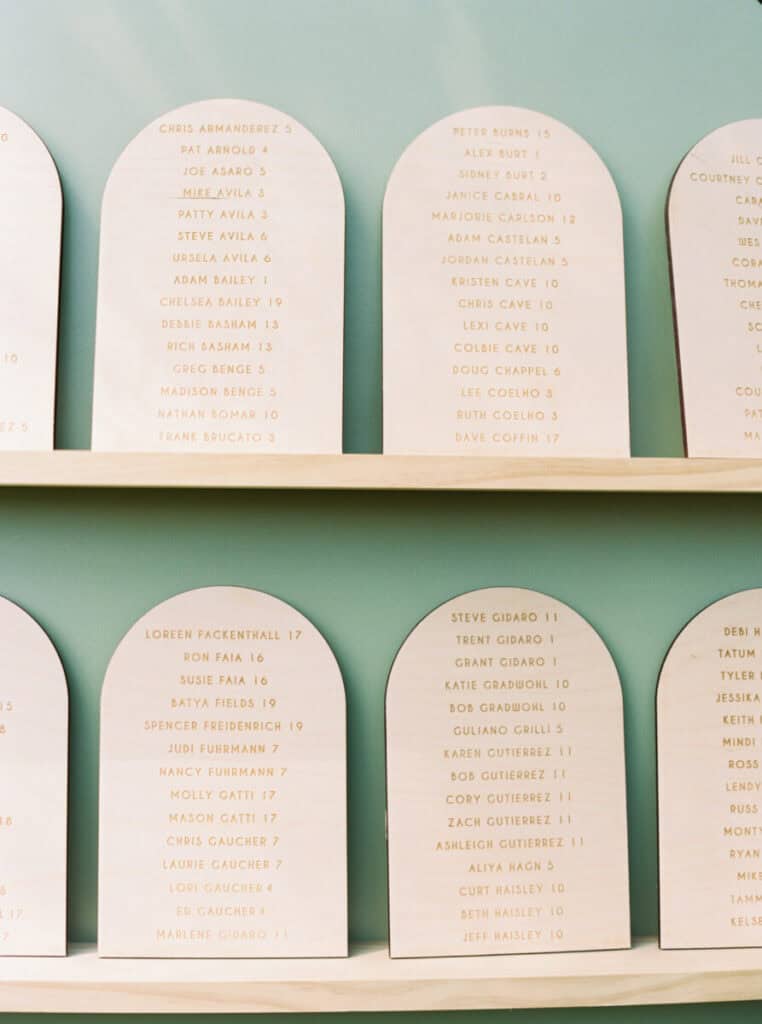 CHRIS ARMANDEREZ 5
PAT ARNOLD 4
JOE ASARO 5
MIKE AVILA 3
PATTY AVILA 3
STEVE AVILA 6
URSELA AVILA 6
ADAM BAILEY 1
CHELSEA BAILEY 19
DEBBIE BASHAM 13
RICH BASHAM 13
GREG BENGE 5
MADISON BENGE 5
NATHAN BOMAR 10
FRANK BRUCATO 3
PETER BURNS 15
ALEX BURT 1
SIDNEY BURT 2
JANICE CABRAL 10
MARJORIE CARLSON 12
ADAM CASTELAN 5
JORDAN CASTELAN 5
KRISTEN CAVE 10
CHRIS CAVE 10
LEXI CAVE 10
COLBIE CAVE 10
DOUG CHAPPEL 6
LEE COELHO 3
RUTH COELHO 3
DAVE COFFIN 17
JILL
COURTNEY
THOMA
LOREEN FACKENTHALL 17
RON FAIA 16
SUSIE FAIA 16
BATYA FIELDS 19
SPENCER FREIDENRICH 19
JUDI FUHRMANN 7
NANCY FUHRMANN 7
MOLLY GATTI 17
MASON GATTI 17
CHRIS GAUCHER 7
LAURIE GAUCHER 7
LORI GAUCHER 4
ED GAUCHER 4
MARLENE GIDARO 11
STEVE GIDARO 11
TRENT GIDARO 1
GRANT GIDARO 1
KATIE GRADWOHL 10
BOB GRADWOHL 10
GULIANO GRILLI 5
KAREN GUTIERREZ 11
BOB GUTIERREZ 11
CORY GUTIERREZ 11
ZACH GUTIERREZ 11
ASHLEIGH GUTIERREZ 11
ALIYA HAGN 5
CURT HAISLEY 10
BETH HAISLEY 10
JEFF HAISLEY 10
DEBI H
TATUM
TYLER
JESSIKA
KEITH
MINDI
ROSS
LENDY
RUSS
MONTY
RYAN
MIKE
TAMM
KELSE